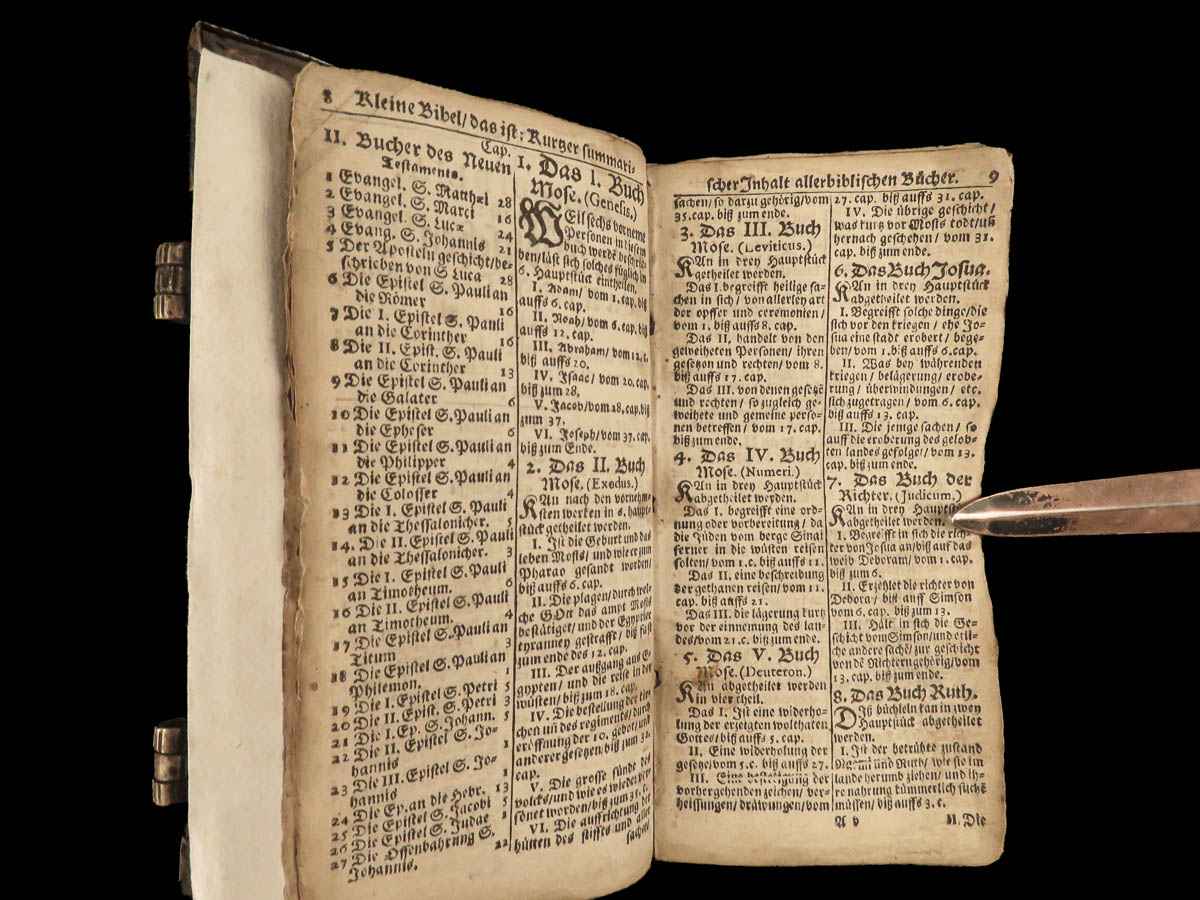 8 Kleine Bibel/ das ist: Kurtzer summari-
II. Bucher des Neuen
Testaments. Cap.
1 Evangel. S. Matthæi 28
2 Evangel. S. Marci 16
3 Evangel. S. Lucæ 24
4 Evang. S. Johannis 21
5 Der Aposteln geschicht/ be-
schrieben von S Luca 28
6 Die Epistel S. Pauli an
die Römer 16
7 Die I. Epistel S. Pauli
an die Corinther 16
8 Die II. Epist. S. Pauli
an die Corinther 13
9 Die Epistel S. Pauli an
die Galater 6
10 Die Epistel S. Pauli an
die Epheser 6
11 Die Epistel S. Pauli an
die Philipper 4
12 Die Epistel S. Pauli an
die Colosser 4
13 Die I. Epistel S. Pauli
an die Thessalonicher. 5
14. Die II. Epistel S. Pauli
an die Thessalonicher. 3
15 Die I. Epistel S. Pauli
an Timotheum. 6
16 Die II. Epistel S. Pauli
an Timotheum. 4
17 Die Epistel S. Pauli an
Titum 3
18 Die Epistel S. Pauli an
Philemon.
19 Die I. Epistel S. Petri 5
20 Die II. Epist. S. Petri 3
21 Die I. Ep. S. Johann. 5
22 Die II. Epistel S. Jo-
hannis 1
23 Die III. Epistel S. Jo-
hannis 1
24 Die Ep. an die Hebr. 13
25 Die Epistel S. Jacobi 5
26 Die Epistel S. Judae 1
27 Die Offenbahrung S.
Johannis. 22
1. Das I. Buch
Mose. (Genesis.)
WEil sechs vorneme
Personen in diesem
buch werdē beschrie-
ben/ läst sich solches füglich in
6. Hauptstück eintheilen.
I. Adam/ vom 1. cap. biß
auffs 6. cap.
II. Noah/ vom 6. cap. biß
auffs 12. cap.
III. Abraham/ vom 12. c.
biß auffs 20.
IV. Isaac/ vom 20. cap.
biß zum 28.
V. Jacob/ vom 28. cap. biß
zum 37.
VI. Joseph/ vom 37. cap.
biß zum Ende.
2. Das II. Buch
Mose. (Exodus.)
KAn nach den vornehm-
sten wercken in 6. haupt-
stück getheilet werden.
I. Ist die Geburt und das
leben Mosis/ und wie er zum
Pharao gesandt werden/
biß auffs 6. cap.
II. Die plagen/ durch wel-
che GOtt das ampt Mosis
bestätiget/ und der Egyptier
tyranney gestrafft/ biß fast
zum ende des 12. cap.
III. Der außgang aus E-
gypten/ und die reise in der
wüsten/ biß zum 18. cap.
IV. Die bestellung der kir-
chen uñ des regiments/ durch
eröffnung der 10. gebot/ und
anderer gesetzen/ biß zum 32.
cap.
V. Die grosse sünde des
volcks/ und wie es wieder ver-
sönet worden/ biß zum 35. c.
VI. Die auffrichtung der
hütten des stiffts und aller
sachen/
scher Inhalt aller biblischen Bücher. 9
sachen/ so darzu gehörig/ vom
35. cap. biß zum ende.
3. Das III. Buch
Mose. (Leviticus.)
KAn in drey Hauptstück
getheilet werden.
Das I. begreifft heilige sa-
chen in sich/ von allerley art
der opffer und ceremonien/
vom 1. biß auffs 8. cap.
Das II. handelt von den
geweiheten Personen/ ihren
gesetzen und rechten/ vom 8.
biß auffs 17. cap.
Das III. von denen gesetzē
und rechten/ so zugleich ge-
weihete und gemeine perso-
nen betreffen/ vom 17. cap.
biß zum ende.
4. Das IV. Buch
Mose. (Numeri.)
KAn in drey Hauptstück
abgetheilet werden.
Das I. begreifft eine ord-
nung oder vorbereitung/ da
die Jüden vom berge Sinai
ferner in die wüsten reisen
solten/ vom 1. c. biß auffs 11.
Das II. eine beschreibung
der gethanen reisen/ vom 11.
cap. biß auffs 21.
Das III. die lägerung kurtz
vor der einnemung des lan-
des/ vom 21. c. biß zum ende.
5. Das V. Buch
Mose. (Deuteron.)
KAn abgetheilet werden
in vier theil.
Das I. Ist eine widerho-
lung der erzeigten wolthaten
Gottes/ biß auffs 5. cap.
II. Eine widerholung der
gesetze/ vom 5. c. biß auffs 27.
III. Eine bestetigung der
vorhergehenden zeichen/ ver-
heissungen/ dräwungen/ vom
27. cap. biß auffs 31. cap.
IV. Die übrige geschicht/
was kurtz vor Mosis todt/ uñ
hernach geschehen/ vom 31.
cap. biß zum ende.
6. Das Buch Josua.
KAn in drey Hauptstück
abgetheilet werden.
I. Begreifft solche dinge/ die
sich vor den kriegen/ ehe Jo-
sua eine stadt erobert/ bege-
ben/ vom 1. biß auffs 6. cap.
II. Was bey währenden
kriegen/ belägerung/ erobe-
rung/ überwindungen/ etc.
sich zugetragen/ vom 6. cap.
biß auffs 13. cap.
III. Die jenige sachen/ so
auff die eroberung des gelob-
ten landes gefolget/ vom 13.
cap. biß zum ende.
7. Das Buch der
Richter. (Judicum.)
KAn in drey Hauptst
abgetheilet werden.
I. Begreifft in sich die rich-
ter von Josua an/ biß auf das
weib Deboram/ vom 1. cap.
biß zum 6.
II. Erzehlet die richter von
Debora/ biß auff Simson
vom 6. cap. biß zum 13.
III. Hält in sich die Ge-
schicht vom Simson/ und etli-
che andere sachē/ zur geschicht
von dē Richtern gehörig/ vom
13. cap. biß zum ende.
8. Das Buch Ruth.
DIß büchlein kan in zwey
Hauptstück abgetheilet
werden.
I. Ist der betrübte zustand
Naemi und Ruth/ wie sie im
lande herumb ziehen/ und ih-
re nahrung kümmerlich suchē
müssen/ biß auffs 3. c.
A v II. Die